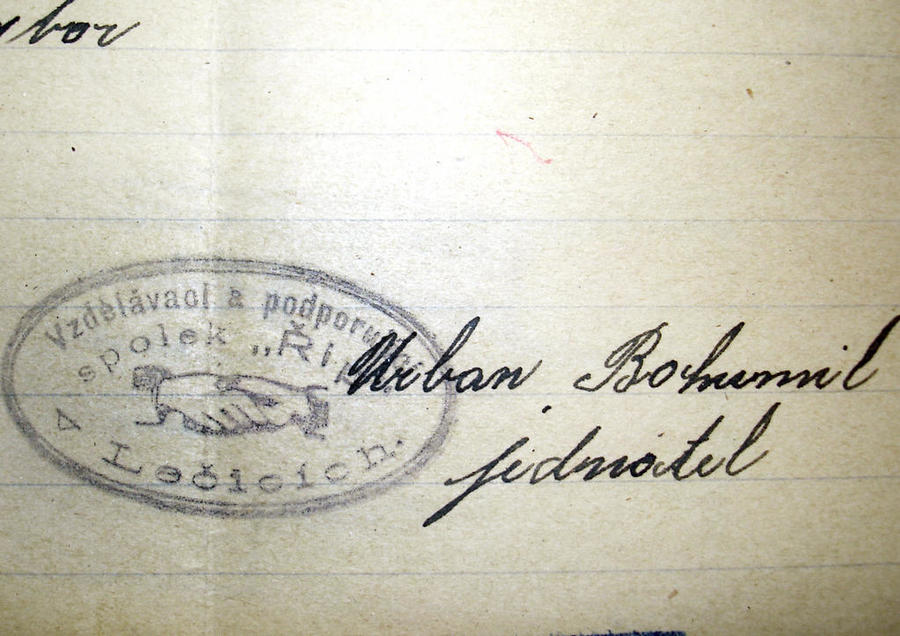 Vzdělávací a
spolek „Ři
v
Lečicích.
Urban Bohumil
jednatel